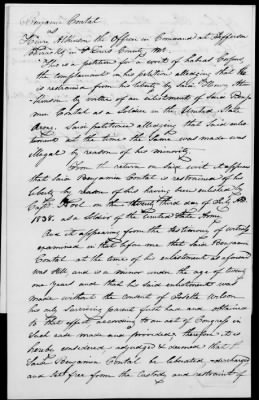 Benjamin Contal
vs
Henry Atkinson the Officer in Command at Jefferson
Barracks in St Louis County, Mo.
This is a petition for a writ of habeas Corpus,
the complainant in his petition alledging that he
is restrained from his liberty by Said Henry Atk
inson by virtue of an enlistment of said Benja
min Contal as a Soldier in the United States
Army. Said petitioner alledging that Said enlist
ment at the time the Same was made was
illegal by reason of his minority.
From the return on said writ it appears
that Said Benjamin Contal is restrained of his
liberty by reason of his having been enlisted by
Capt on the twenty third day of July AD.
1838. as a Soldier of the United States Army
And it appearing from the testimony of witnesses
examined in that before me that Said Benjamin
Contal at the time of his enlistment as aforesaid
was still, and is a minor under the age of twenty
one years and that his Said enlistment was
made without the consent of
his only Surviving parent first had and obtained
to that effect, according to an act of Congress in
Such case made and provided therefore it is
hereby considered adjudged & decreed that
Said Benjamin Contal be liberated, discharged
and set free from the Custody and restraint of